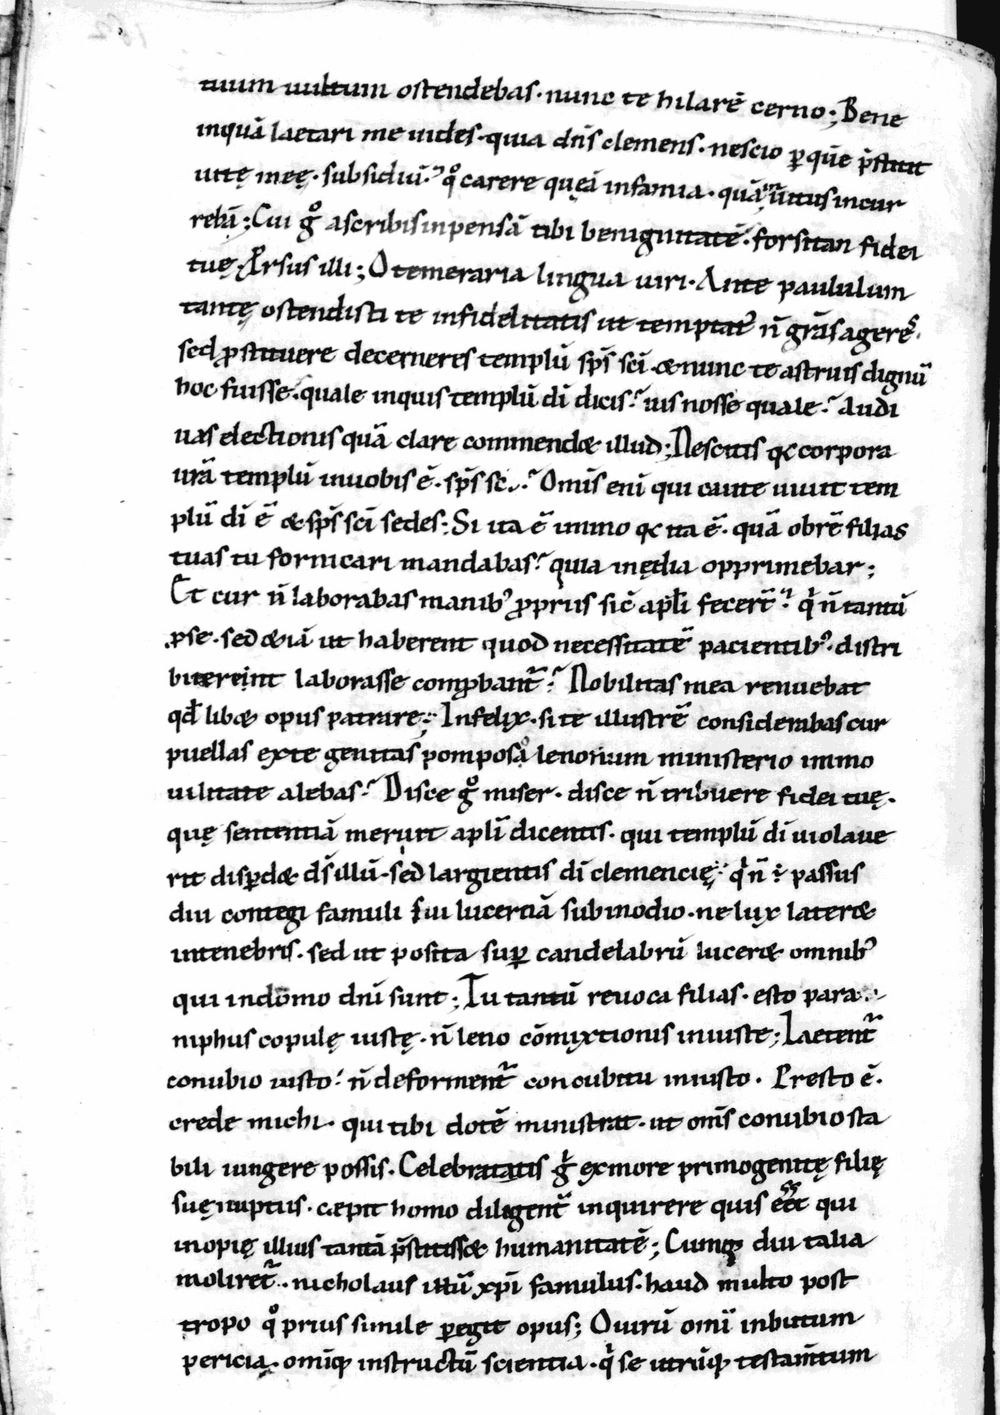 tuum uultum ostendebas · nunc te hilarē cerno ; Bene
inquā laetari me uides · quia dn̄s clemens · nescio ꝑ quē p̄stitit
uitę męę · subsidiū · qͦ carere quęā infamia · quā n̄ntus incur
relū ; Cui gͦ ascribis inpensā tibi benignitatē · forsitan fidei
tuę · Rursus illi ; O temeraria lingua uiri · Ante paululum
tantę ostendisti te infidelitatis ut temptatꝰ n̄ grās ageres ·
sed ꝓstituere decerneres templū sp̄s sc̄i · & nunc te astruis dignū
hoc fuisse · quale inquis templū dī dicis · uis nosse quale · Audi
uas electionis quā clare commend& illud ; Nescitis qꝫ corpora
ur̄a templū in uobis ē · sp̄s sc̄i · Om̄is enī qui caute uiuit tem
plū dī ē & sp̄s sc̄i sedes ; Si ita ē immo qꝫ ita ē · quā ob rē filias
tuas tu fornicari mandabas · quia inędia opprimebar ;
Et cur n̄ laborabas manibꝰ ꝓpriis sic̄ apl̄i fecer̄t · qͥ n̄ tantū
ꝓ se · sed &iā ut haberent quod necessitatē pacientibꝰ · distri
buereint laborasse comꝓbant᷑ · Nobilitas mea renuebat
qđ lib& opus patrare · Infelix · si te illustrē considerabas cur
puellas ex te genitas pomposa lenonum ministerio immo
uilitate alebas · Disce gͦ miser · disce n̄ tribuere fidei tuę ·
quę sententiā meruit apl̄i dicentis · qui templū dī uiolaue
rit disꝑd& ds̄ illū · sed largientis dī clemencię · qͥ n̄ ÷ passus
diu contegi famuli sui lucernā sub modio · ne lux later&
in tenebris · sed ut posita suꝑ candelabrū lucer& omnibꝰ
qui in domo dn̄i sunt ; Tu tantū reuoca filias · esto para
niphus copulę iustę · n̄ leno cōmixtionis iniuste ; Laetent᷑
conubio iusto · n̄ deforment᷑ concubitu iniusto · Presto ē ·
crede michi · qui tibi dotē ministrat · ut om̄s conubio sta
bili iungere possis · Celebratis gͥ ex more primogenitę filię
suę nuptiis · cępit homo diligent᷑ inquirere quis ee̅t qui
inopię illius tantā p̄stitiss& humanitatē ; Cumqꝫ diu talia
moliret᷑ · nicholaus illū xp̄i famulus · haud multo post
tropo qͦ prius simile ꝑegit opus ; O uirū omī inbutum
pericia · omiqꝫ instructū scientia · qͥ se utrūqꝫ testam̄tum